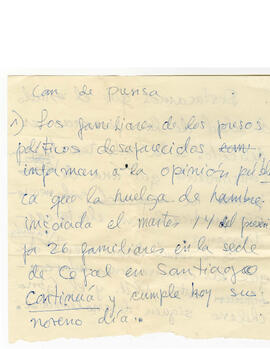 Con de prensa
1) Los familiares de los presos
políticos desaparecidos
informan a la opinión públi
ca que la huelga de hambre
iniciada el martes 14 del presen
por 26 familiares en la sede
de Cepal en Santiago
continúa y cumple hoy su
noveno día.